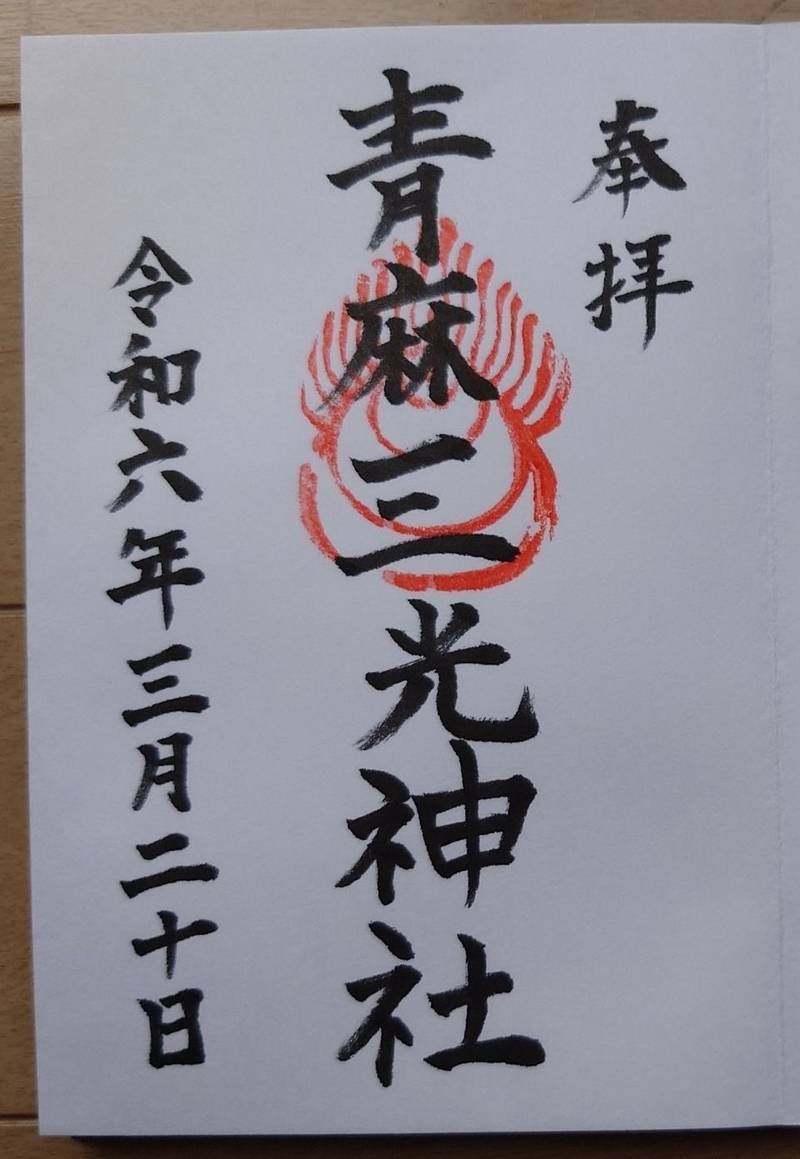 奉拝
青麻三光神社
令和六年三月二十日